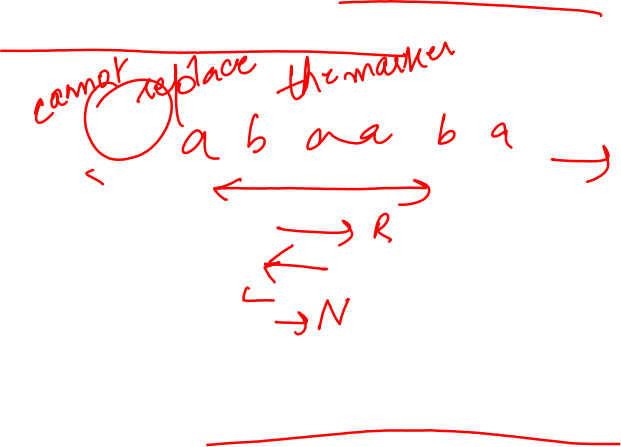 cannot replace the marker
a b a a b a
R
N